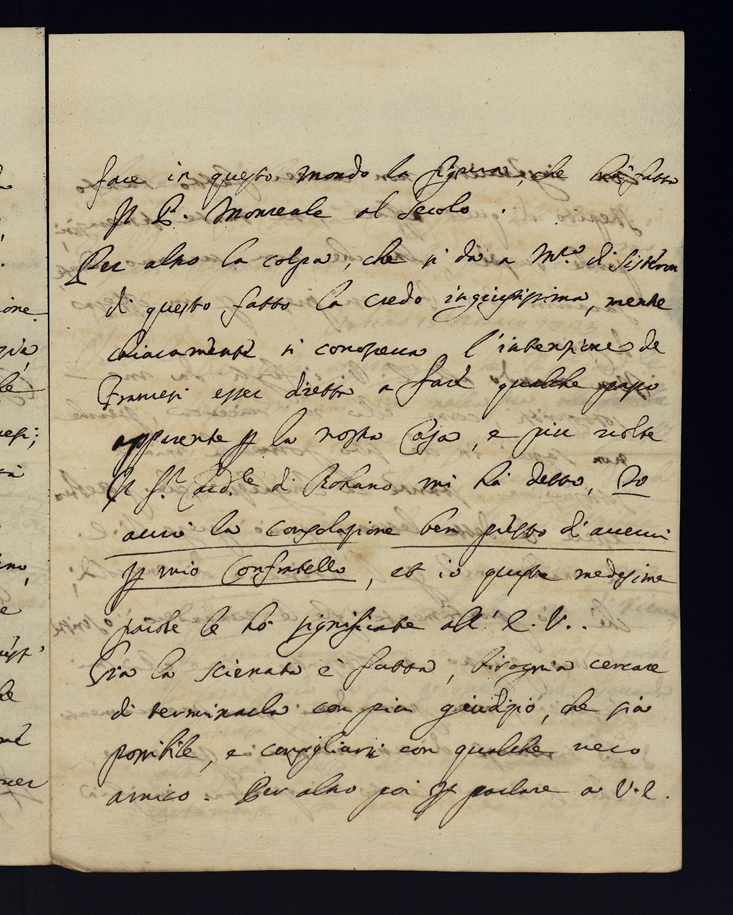 fare in questo mondo la figura, che hà fatto
il P. Monreale al secolo.
Per altro la colpa, che si dà a Mr. di Sisteron
di questo fatto la credo ingiustissima, mentre
chiaramente si conosceva l'intenzione de
Francesi esser diretta a fare qualche passo
apparente p la nostra Casa, e più volte
il Sr. Card.le di Rohano mi hà detto, Io
avrò la consolazione ben presto d'avervi
p mio Confratello, et io queste medesime
parole le hò significate all' E. V..
Già la scienata è fatta, bisogna cercare
di terminarla con più giudizio, che sia
possibile, e consigliarsi con qualche vero
amico. Per altro poi p parlare a V. E.
ione
le
he